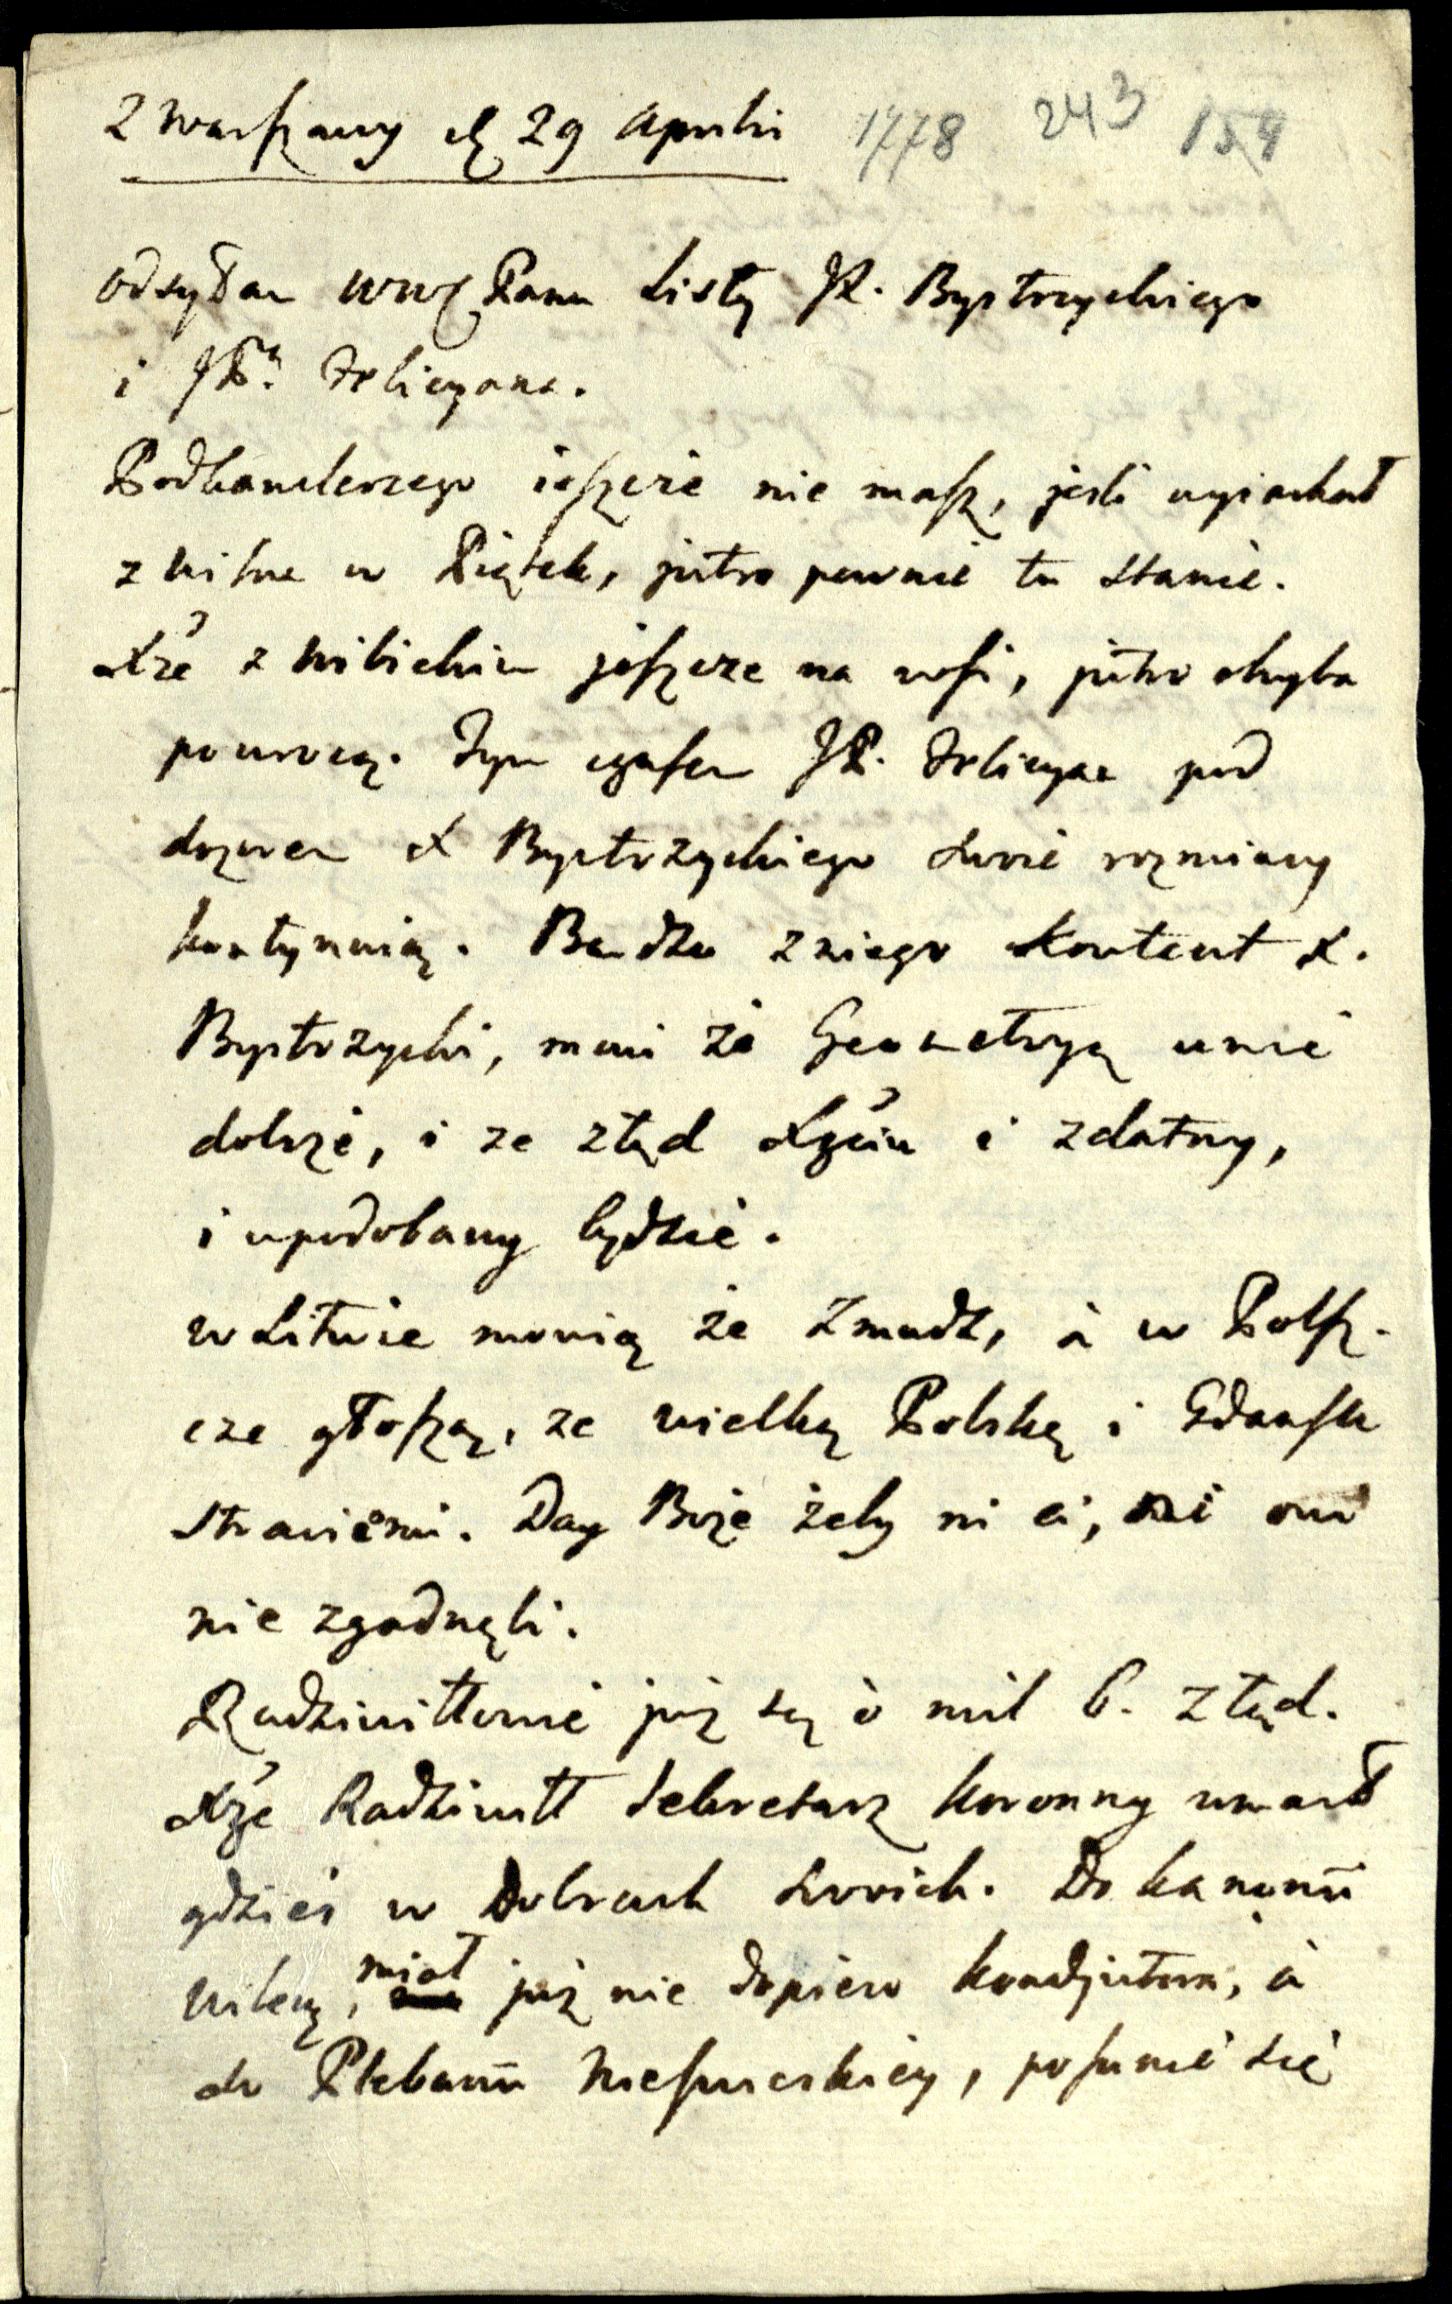 z Warszawy d 29 Aprilis 1778 243 154
odsyłam WWC Panu Listy JX. Bystrzyckiego
i JPa. Felicyana.
Podkanclerzego ieszcze nie masz, jesli wyiachał
z Wilna w Piątek, jutro pewnie tu stanie.
Xże z Wilickim jeszcze na wsi, jutro chyba
powrocą. Tym czasem JP. Felicyan pod
dozorem X Bystrzyckiego swoie rozmiary
kontynuią. Bardzo z niego kontent X.
Bystrzycki, mowi że Geometryą umie
dobrze, i ze ztąd Xżciu i zdatny,
i upodobany będzie.
w Litwie mowią że Zmudz, à w Polsz-
cze głoszą, ze wielką Polskę i Gdansk
straciemi. Day Boże żeby ni ci, ni oni
nie zgadnęli.
Radziwiłłowie już są o mil 6. ztąd.
Xże Radziwiłł Sekretarz Koronny umarł
gdzieś w Dobrach swoich. Do kanonii
Wileń, miał już nie dopiero koadjutora, à
do Plebanii Nieświeskiey, posunie się